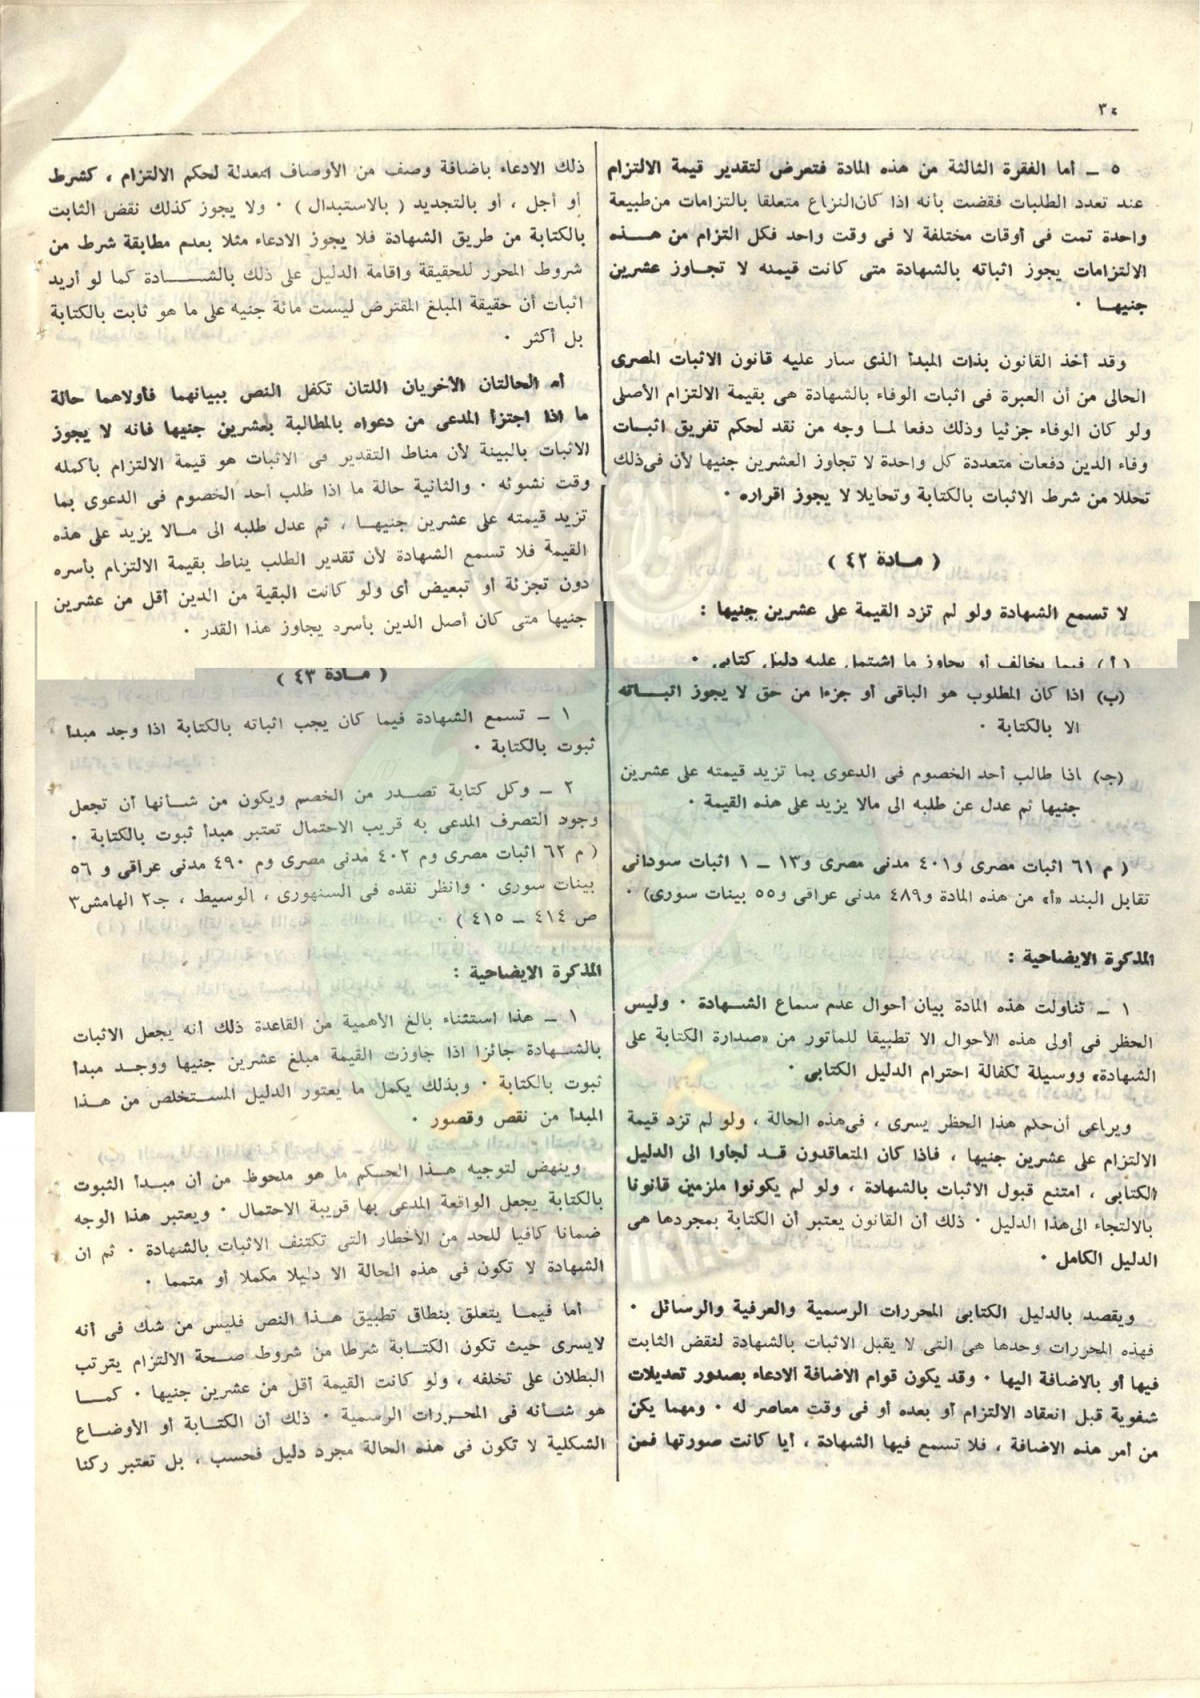 ٣٤
٥ ـ أما الفقرة الثالثة من هذه المادة فتعرض لتقدير قيمة الالتزام
عند تعدد الطلبات فقضت بأنه اذا كان النزاع متعلقا بالتزامات من طبيعة
واحدة تمت فى أوقات مختلفة لا فى وقت واحد فكل التزام من هـــذه
الالتزامات يجوز اثباته بالشهادة متى كانت قيمته لا تجاوز عشرين
جنيهـا ٠
وقد أخذ القانون بذات المبدأ الذى سار عليه قانون الاثبات المصرى
الحالى من أن العبرة فى اثبات الوفاء بالشهادة هى بقيمة الالتزام الأصلى
ولو كان الوفاء جزئيا وذلك دفعا لمـا وجه من نقد لحكم تفريق اثبـات
وفاء الدين دفعات متعددة كل واحدة لا تجاوز العشرين جنيها لأن فى ذلك
تحللا من شرط الاثبات بالكتابة وتحايلا لا يجوز اقراره ٠
( مـادة ٤٢ )
لا تسمع الشهادة ولو لم تزد القيمة على عشرين جنيها :
(أ) فيما يخالف أو يجاوز ما اشتمل عليه دليل كتابى ٠
(ب) اذا كان المطلوب هو الباقى أو جزءا من حق لا يجوز اثبـــاته
الا بالكتابة ٠
(جـ) اذا طالب أحد الخصوم فى الدعوى بما تزيد قيمته على عشرين
جنيها ثم عدل عن طلبه الى مالا يزيد على هذه القيمة ٠
( م ٦١ اثبات مصرى و٤٠١ مدنى مصرى و١٣ ـ ١ اثبات سودانى
تقابل البند «أ» من هذه المادة و٤٨٩ مدنى عراقى و٥٥ بينات سورى) ٠
المذكرة الايضاحية :
١ ـ تناولت هذه المادة بيان أحوال عدم سماع الشهـادة ٠ وليس
الحظر فى أولى هذه الأحوال الا تطبيقا للمأثور من «صدارة الكتابة على
الشهادة» ووسيلة لكفالة احترام الدليل الكتابى ٠
ويراعى أن حكم هذا الحظر يسرى ، فى هذه الحالة ، ولو لم تزد قيمة
الالتزام على عشرين جنيها ، فاذا كان المتعاقدون قـد لجأوا الى الدليل
الكتابى ، امتنع قبول الاثبات بالشهادة ، ولو لم يكونوا ملزمين قانونا
بالالتجاء الى هذا الدليل ٠ ذلك أن القانون يعتبر أن الكتابة بمجردها هى
الدليل الكامل ٠
ويقصد بالدليل الكتابى المحررات الرسمية والعرفية والرسائل ٠
فهذه المحررات وحدها هى التى لا يقبل الاثبات بالشهادة لنقض الثابت
فيها أو بالاضافة اليها ٠ وقد يكون قوام الاضافة الادعاء بصدور تعديلات
شفوية قبل انعقاد الالتزام أو بعده أو فى وقت معاصر له ٠ ومهما يكن
من أمر هذه الاضافة ، فلا تسمع فيها الشهادة ، أيا كانت صورتها فمن
ذلك الادعاء باضافة وصف من الأوصاف المعدلة لحكم الالتزام ، كشرط
أو أجل ، أو بالتجديد ( بالاستبدال ) ٠ ولا يجوز كذلك نقض الثابت
بالكتابة من طريق الشهادة فلا يجوز الادعاء مثلا بعدم مطابقة شرط من
شروط المحرر للحقيقة واقامة الدليل على ذلك بالشـــــادة كما لو أريد
اثبات أن حقيقة المبلغ المقترض ليست مائة جنيه على ما هو ثابت بالكتابة
بل أكثر ٠
أما الحالتان الأخريان اللتان تكفل النص ببيانهما فأولاهما حالة
ما اذا اجتزأ المدعى من دعواه بالمطالبة بعشرين جنيها فانه لا يجوز
الاثبات بالبينة لأن مناط التقدير فى الاثبات هو قيمة الالتزام بأكمله
وقت نشوئه ٠ والثانية حالة ما اذا طلب أحد الخصوم فى الدعوى بما
تزيد قيمته على عشرين جنيهـا ، ثم عدل طلبه الى مـالا يزيد على هذه
القيمة فلا تسمع الشهادة لأن تقدير الطلب يناط بقيمة الالتزام بأسره
دون تجزئة أو تبعيض أى ولو كانت البقية من الدين أقل من عشرين
جنيها متى كان أصل الدين بأسره يجاوز هذا القدر ٠
( مـادة ٤٣ )
١ ـ تسمع الشهادة فيما كان يجب اثباته بالكتابة اذا وجد مبدأ
ثبوت بالكتابة ٠
٢ ـ وكل كتابة تصـدر من الخصم ويكون من شـأنها أن تجعل
وجود التصرف المدعى به قريب الاحتمال تعتبر مبدأ ثبوت بالكتابة ٠
( م ٦٢ اثبات مصرى وم ٤٠٢ مدنى مصرى وم ٤٩٠ مدنى عراقى و ٥٦
بينات سورى ٠ وانظر نقده فى السنهورى ، الوسيط ، جـ٢ الهامش٣
ص ٤١٤ ـ ٤١٥ ) ٠
المذكرة الايضاحية :
١ ـ هذا استثناء بالغ الأهمية من القاعدة ذلك أنه يجعل الاثبات
بالشـهـادة جائزا اذا جاوزت القيمة مبلغ عشرين جنيها ووجـد مبـدأ
ثبوت بالكتابة ٠ وبذلك يكمل ما يعتور الدليل المسـتخلص من هـذا
المبدأ من نقص وقصور ٠
وينهض لتوجيه هـذا الحـكم ما هو ملحوظ من أن مبـدأ الثبوت
بالكتابة يجعل الواقعة المدعى بها قريبة الاحتمال ٠ ويعتبر هذا الوجه
ضمانا كافيا للحد من الأخطار التى تكتنف الاثبات بالشهادة ٠ ثم ان
الشهادة لا تكون فى هذه الحالة الا دليلا مكملا أو متمما ٠
أما فيمـا يتعلق بنطاق تطبيق هـذا النص فليس من شك فى أنه
لايسرى حيث تكون الكتـابة شرطا من شروط صـحة الالتزام يترتب
البطلان على تخلفه ، ولو كانت القيمة أقل من عشرين جنيها ٠ كمـا
هو شـأنه فى المحـررات الرسمية ٠ ذلك أن الكتـابة أو الأوضاع
الشكلية لا تكون فى هذه الحالة مجرد دليل فحسب ، بل تعتبر ركنا